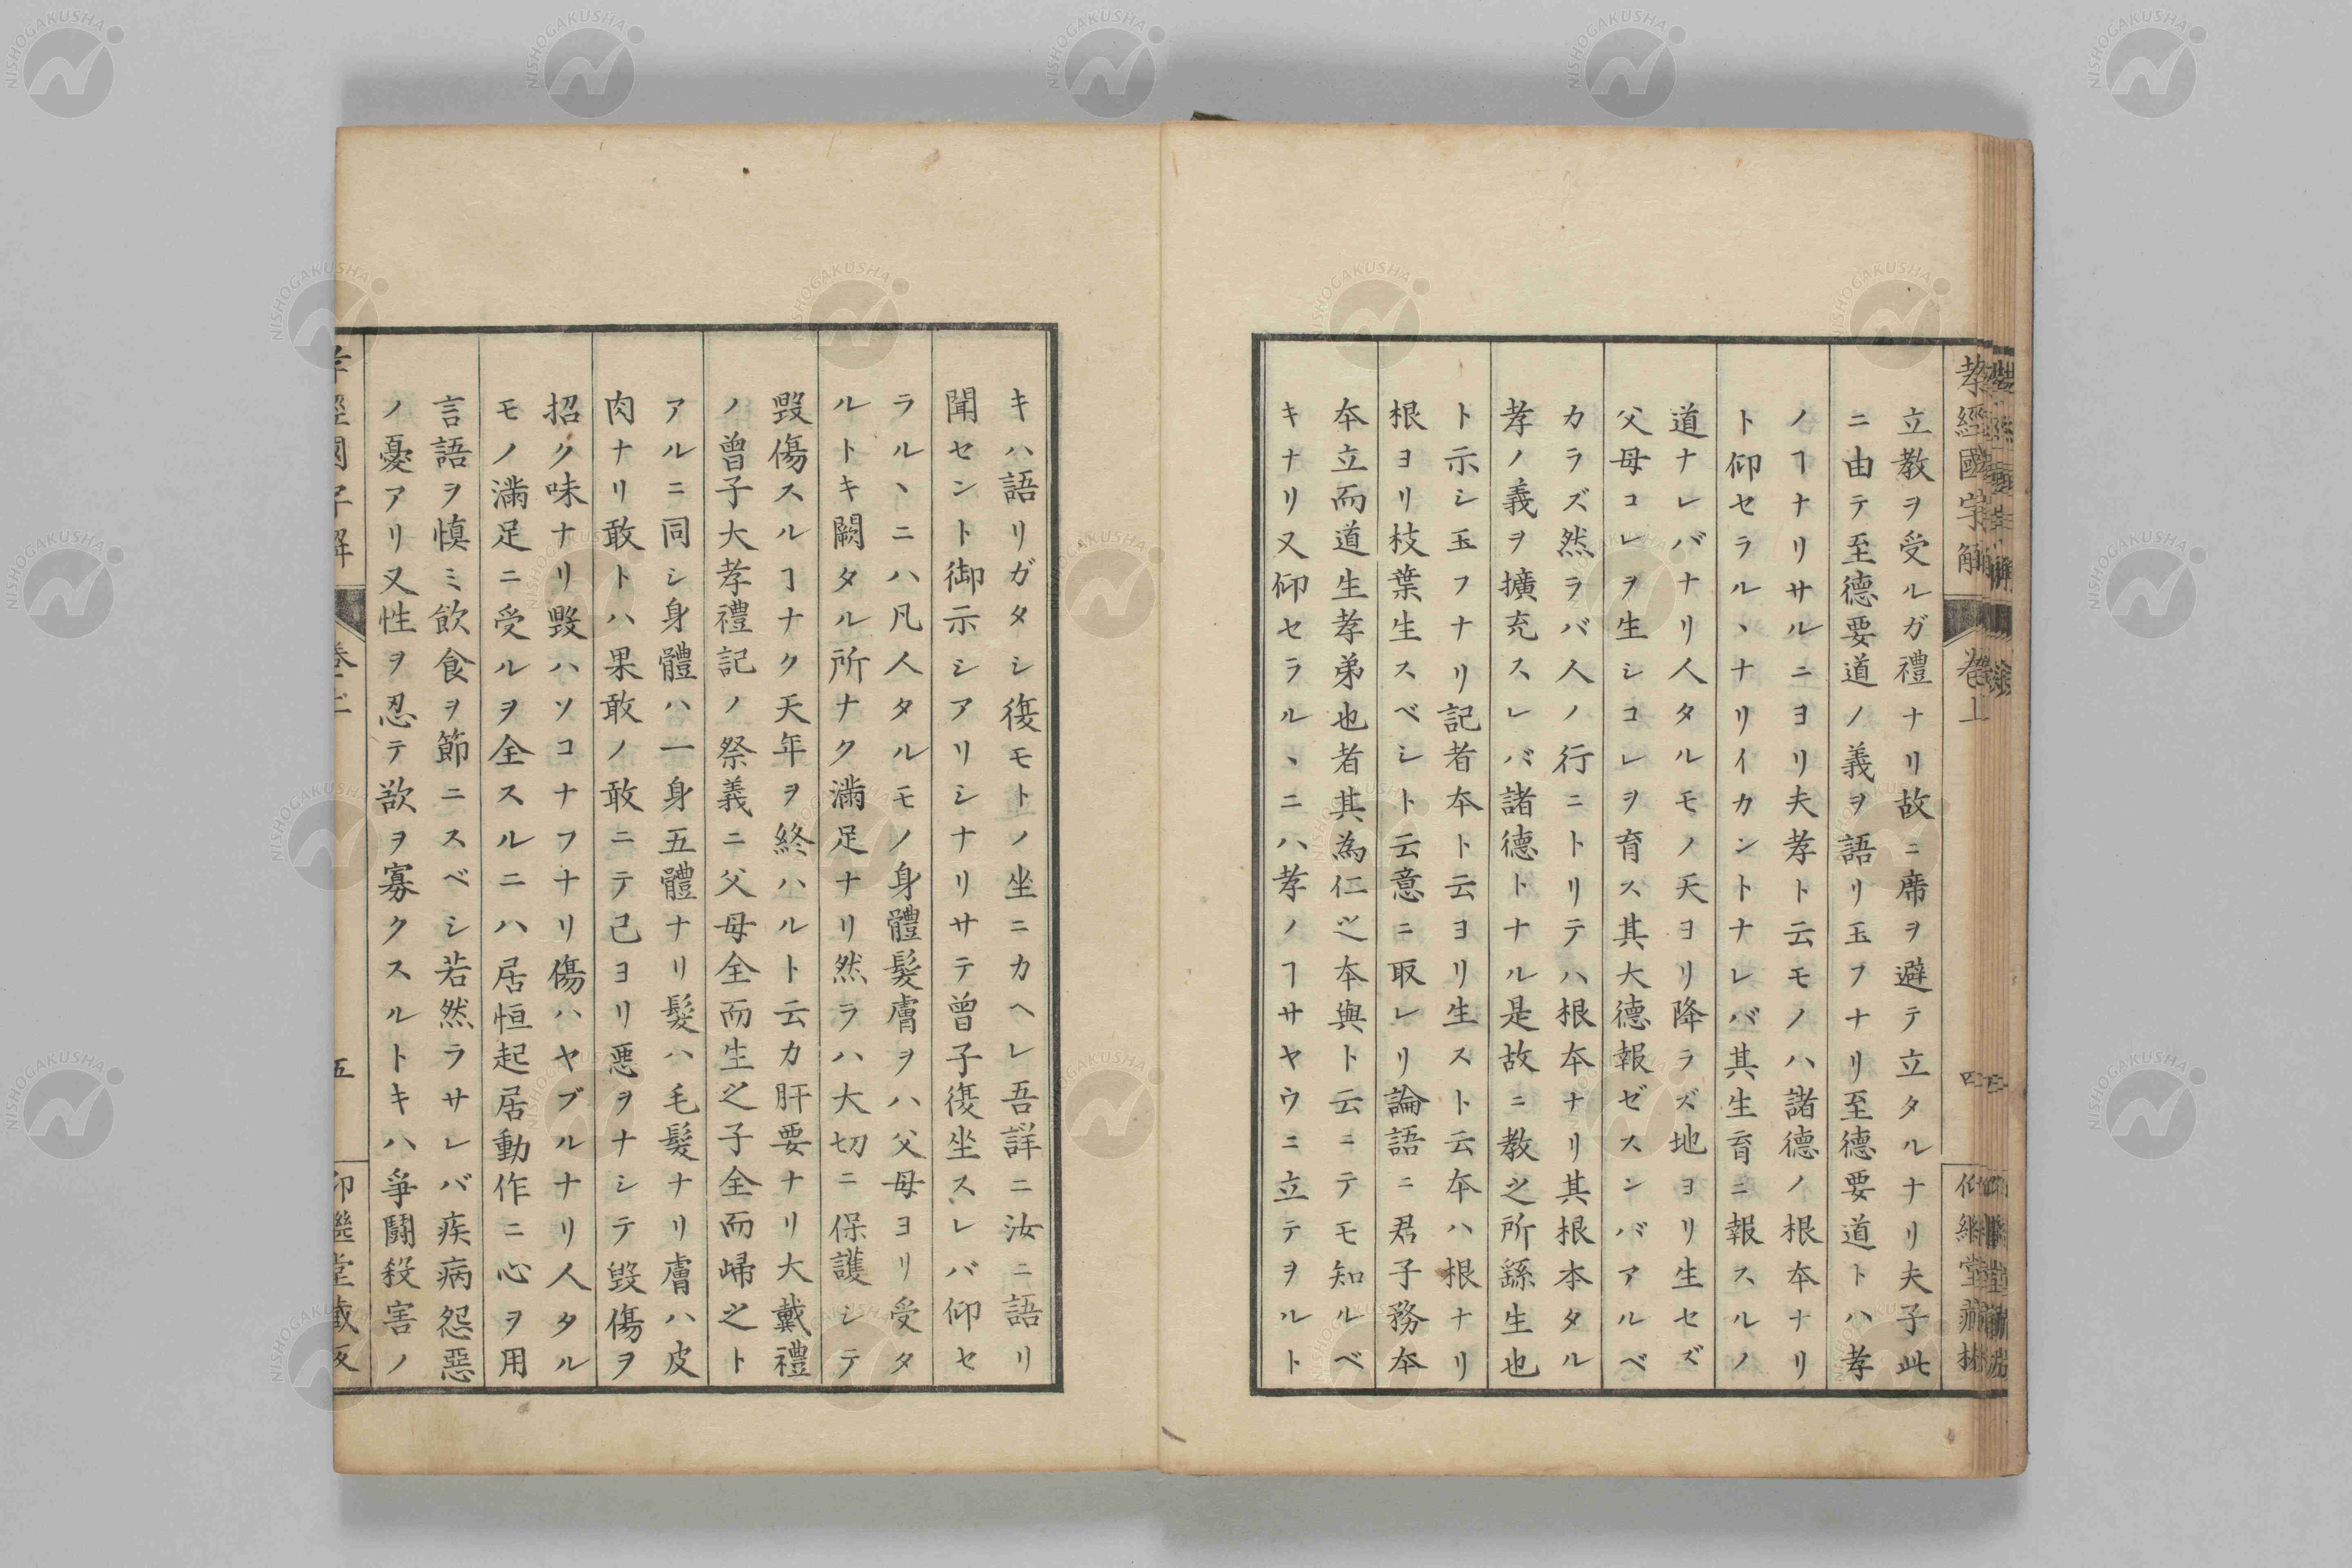 孝經國字解 卷上 四
立教ヲ受ルガ禮ナリ故ニ席ヲ避テ立タルナリ夫子此
ニ由テ至德要道ノ義ヲ語リ玉フナリ至德要道トハ孝
ノヿナリサルニヨリ夫孝ト云モノハ諸德ノ根夲ナリ
ト仰セラルヽナリイカントナレバ其生育ニ報スルノ
道ナレバナリ人タルモノ天ヨリ降ラズ地ヨリ生セズ
父母コレヲ生シコレヲ育ス其大德報ゼスンバアルベ
カラズ然ラバ人ノ行ニトリテハ根夲ナリ其根本タル
孝ノ義ヲ擴充スレバ諸德トナル是故ニ教之所繇生也
ト示シ玉フナリ記者夲ト云ヨリ生スト云夲ハ根ナリ
根ヨリ枝葉生スベシト云意ニ取レリ論語ニ君子務夲
夲立而道生孝弟也者其為仁之夲與ト云ニテモ知ルベ
キナリ又仰セラルヽニハ孝ノヿサヤウニ立テヲルト
キハ語リガタシ復モトノ坐ニカヘレ吾詳ニ汝ニ語リ
聞セント御示シアリシナリサテ曾子復坐スレバ仰セ
ラルヽニハ凡人タルモノ身體髮膚ヲハ父母ヨリ受タ
ルトキ闕タル所ナク滿足ナリ然ラハ大切ニ保護シテ
毀傷スルヿナク天年ヲ終ハルト云カ肝要ナリ大戴禮
ノ曾子大孝禮記ノ祭義ニ父母全而生之子全而歸之ト
アルニ同シ身體ハ一身五體ナリ髮ハ毛髮ナリ膚ハ皮
肉ナリ敢トハ果敢ノ敢ニテ己ヨリ惡ヲナシテ毀傷ヲ
招ク味ナリ毀ハソコナフナリ傷ハヤブルナリ人タル
モノ滿足ニ受ルヲ全スルニハ居恒起居動作ニ心ヲ用
言語ヲ慎ミ飲食ヲ節ニスベシ若然ラサレバ疾病怨惡
ノ憂アリ又性ヲ忍テ欲ヲ寡クスルトキハ爭鬪殺害ノ
孝經國字解 卷上 五
NISHOGAKUSHA